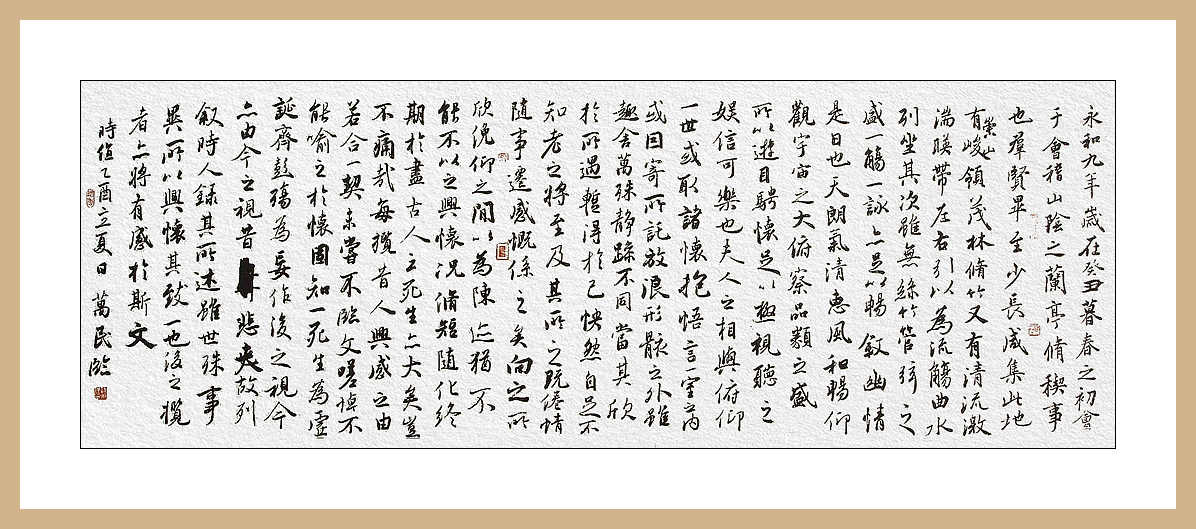 永和九年歲在癸丑暮春之初會
于會稽山陰之蘭亭脩稧事
也羣賢畢至少長咸集此地
有崇山峻領茂林脩竹又有清流激
湍暎帶左右引以為流觴曲水
列坐其次雖無絲竹管弦之
盛一觴一詠亦足以暢敘幽情
是日也天朗氣清惠風和暢仰
觀宇宙之大俯察品類之盛
所以遊目騁懷足以極視聽之
娛信可樂也夫人之相與俯仰
一世或取諸懷抱悟言一室之內
或因寄所託放浪形骸之外雖
趣舍萬殊靜躁不同當其欣
於所遇暫得於己怏然自足不
知老之將至及其所之既倦情
隨事遷感慨係之矣向之所
欣俛仰之間以為陳迹猶不
能不以之興懷況脩短隨化終
期於盡古人云死生亦大矣豈
不痛哉每攬昔人興感之由
若合一契未嘗不臨文嗟悼不
能喻之於懷固知一死生為虛
誕齊彭殤為妄作後之視今
亦由今之視昔悲夫故列
敘時人錄其所述雖世殊事
異所以興懷其致一也後之攬
者亦將有感於斯文
時值乙酉立夏日 萬民臨